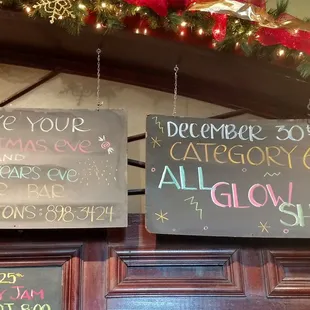 E YOUR
TMAS EVE
AND
YEARS EVE
BAR
TONS: 898-3424
DECEMBER 30
CATEGORY 6
ALL GLOW
SH
25th
JAM